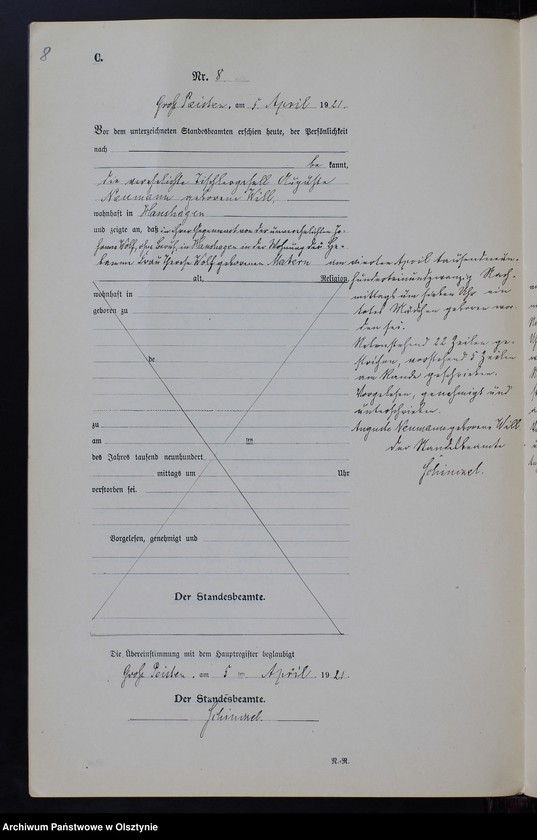 8
C.
Nr. 8
Groß Peisten, am 5 April 1921.
Vor dem unterzeichneten Standesbeamten erschien heute, der Persönlichkeit
nach
be kannt,
die verehelichte Tischlergesell Auguste
Neumann geborene Will
wohnhaft in Hanshagen
und zeigte an, daß in ihrer Gegenwart von der unverehelichten Jo-
hanna Wolf, ohne Beruf, in Hanshagen in der Wohnung der He-
bamme Frau Wolf geborenen Matern am vierten April tausendneun-
alt, Religion,
hunderteinundzwanzig Nach-
mittags um sieben Uhr ein
totes Mädchen geboren wor-
den sei.
Nebenstehend 22 Zeilen ge-
strichen, vorstehend 5 Zeilen
am Rande geschrieben.
Vorgelesen, genehmigt und
unterschrieben.
Auguste Neumann geborene Will
Der Standesbeamte
Schimmel.
wohnhaft in
geboren zu
de
zu
am ten
des Jahres tausend neunhundert
mittags um Uhr
verstorben sei.
Vorgelesen, genehmigt und
Der Standesbeamte.
Die Übereinstimmung mit dem Hauptregister beglaubigt
Groß Peisten, am 5 April 1921.
Der Standesbeamte.
Schimmel.
R.-R.
Archiwum Państwowe w Olsztynie